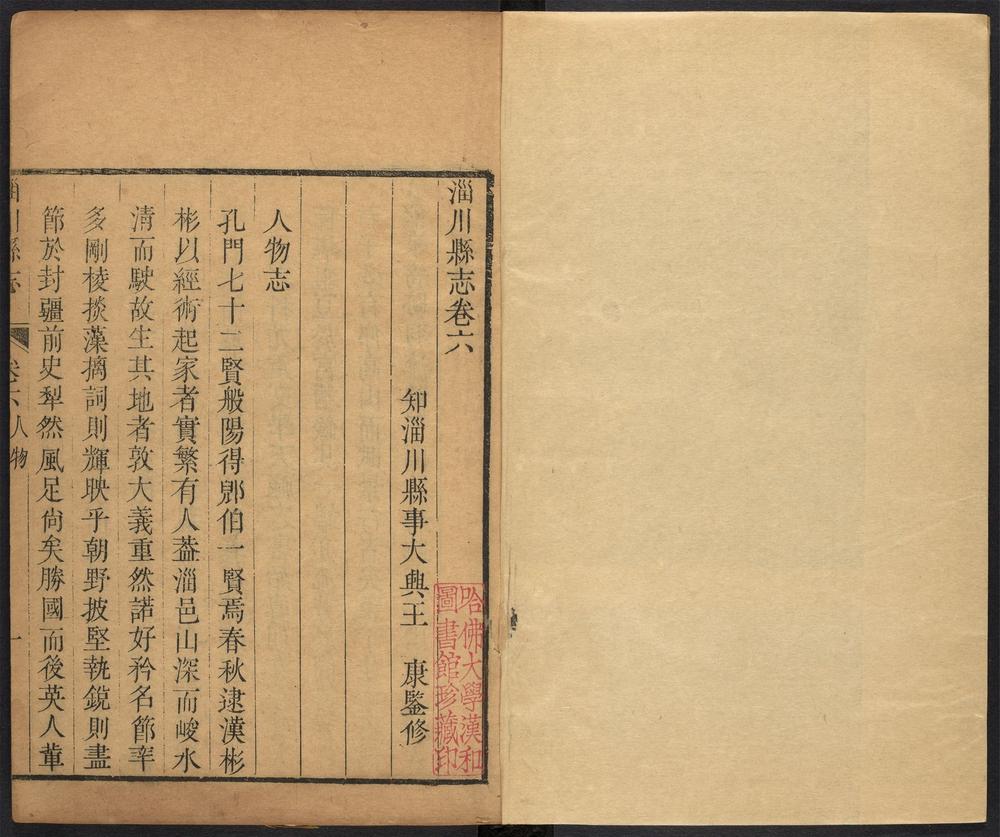 淄川縣志卷六
知淄川縣事大興王　康鑒修
人物志
孔門七十二賢般陽得郎伯一賢焉春秋逮漢彬
彬以經術起家者實繁有人葢淄邑山深而峻水
清而駛故生其地者敦大義重然諾好矜名節率
多剛棱掞藻摛詞則輝映乎朝野披堅執銳則盡
節於封疆前史犁然風足尙矣勝國而後英人葷
淄川縣志
卷六人物
一
哈佛大學漢和
圖書館珍藏印